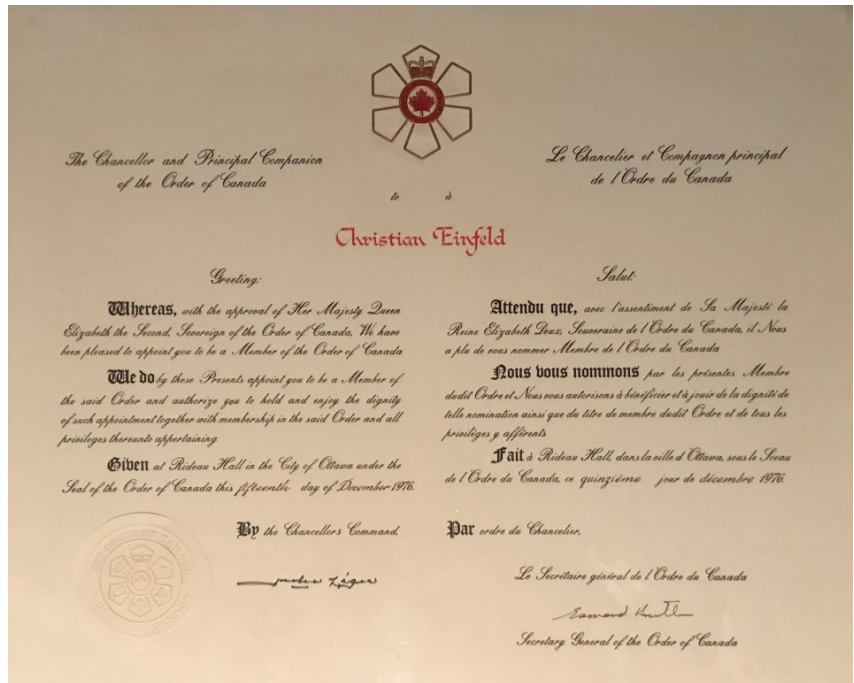 The Chancellor and Principal Companion
of the Order of Canada
Le Chancelier et Compagnon principal
de l'Ordre du Canada
to à
Christian Einfeld
Greeting:
Whereas, with the approval of Her Majesty Queen
Elizabeth the Second, Sovereign of the Order of Canada, We have
been pleased to appoint you to be a Member of the Order of Canada
We do by these Presents appoint you to be a Member of
the said Order and authorize you to hold and enjoy the dignity
of such appointment together with membership in the said Order and all
privileges thereunto appertaining
Given at Rideau Hall in the City of Ottawa under the
Seal of the Order of Canada this fifteenth day of December 1976.
By the Chancellors Command,
Salut:
Attendu que, avec l'assentiment de Sa Majesté la
Reine Elizabeth Deux, Souveraine de l'Ordre du Canada, il Nous
a plu de vous nommer Membre de l'Ordre du Canada
Nous vous nommons par les présentes Membre
dudit Ordre et Nous vous autorisons à bénéficier et à jouir de la dignité de
telle nomination ainsi que du titre de membre dudit Ordre et de tous les
privilèges y afférents
Fait à Rideau Hall, dans la ville d'Ottawa, sous le Sceau
de l'Ordre du Canada, ce quinzième jour de décembre 1976.
Par ordre du Chancelier,
Léger
Le Secrétaire général de l'Ordre du Canada
Esmond Butler
Secretary General of the Order of Canada